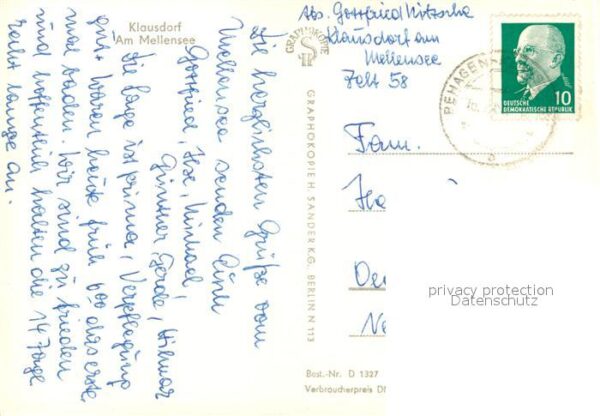 Klausdorf
Am Mellensee
Die herzlichsten Grüße vom
Mellensee senden Euch
Gottfried, Ilse, Michael,
Günther, Gerda, Hilmar
Die Lage ist prima, Verpflegung
gut. Waren heute früh 600 das erste
mal baden. Wir sind zufrieden
und hoffentlich halten die 14 Tage
recht lange an.
GRAPHOKOPIE
GRAPHOKOPIE H. SANDER K.G. BERLIN N 113
Best.-Nr. D 1327
Verbraucherpreis
Abs. Gottfried Nitzsche
Klausdorf am
Mellensee
Zelt 58
DEUTSCHE
DEMOKRATISCHE REPUBLIK
10
Fam.
privacy protection
Datenschutz